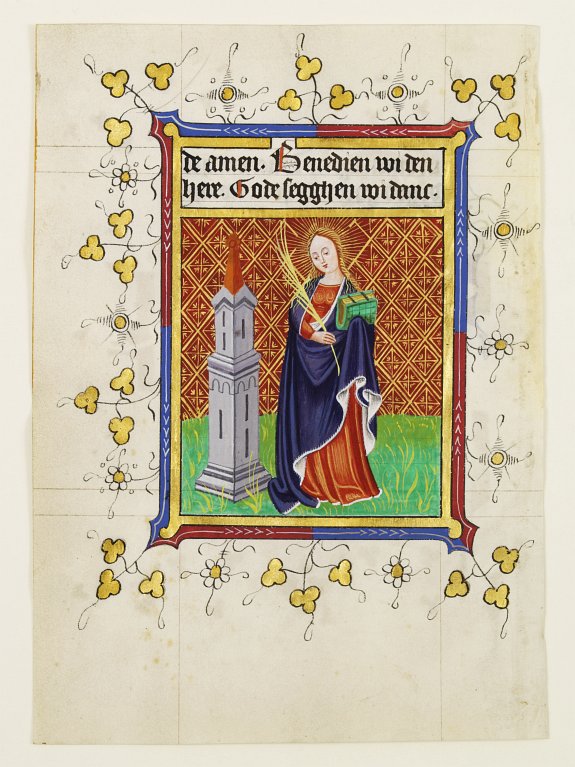 de amen. Benedien wi den
here. Gode segghen wi danc.